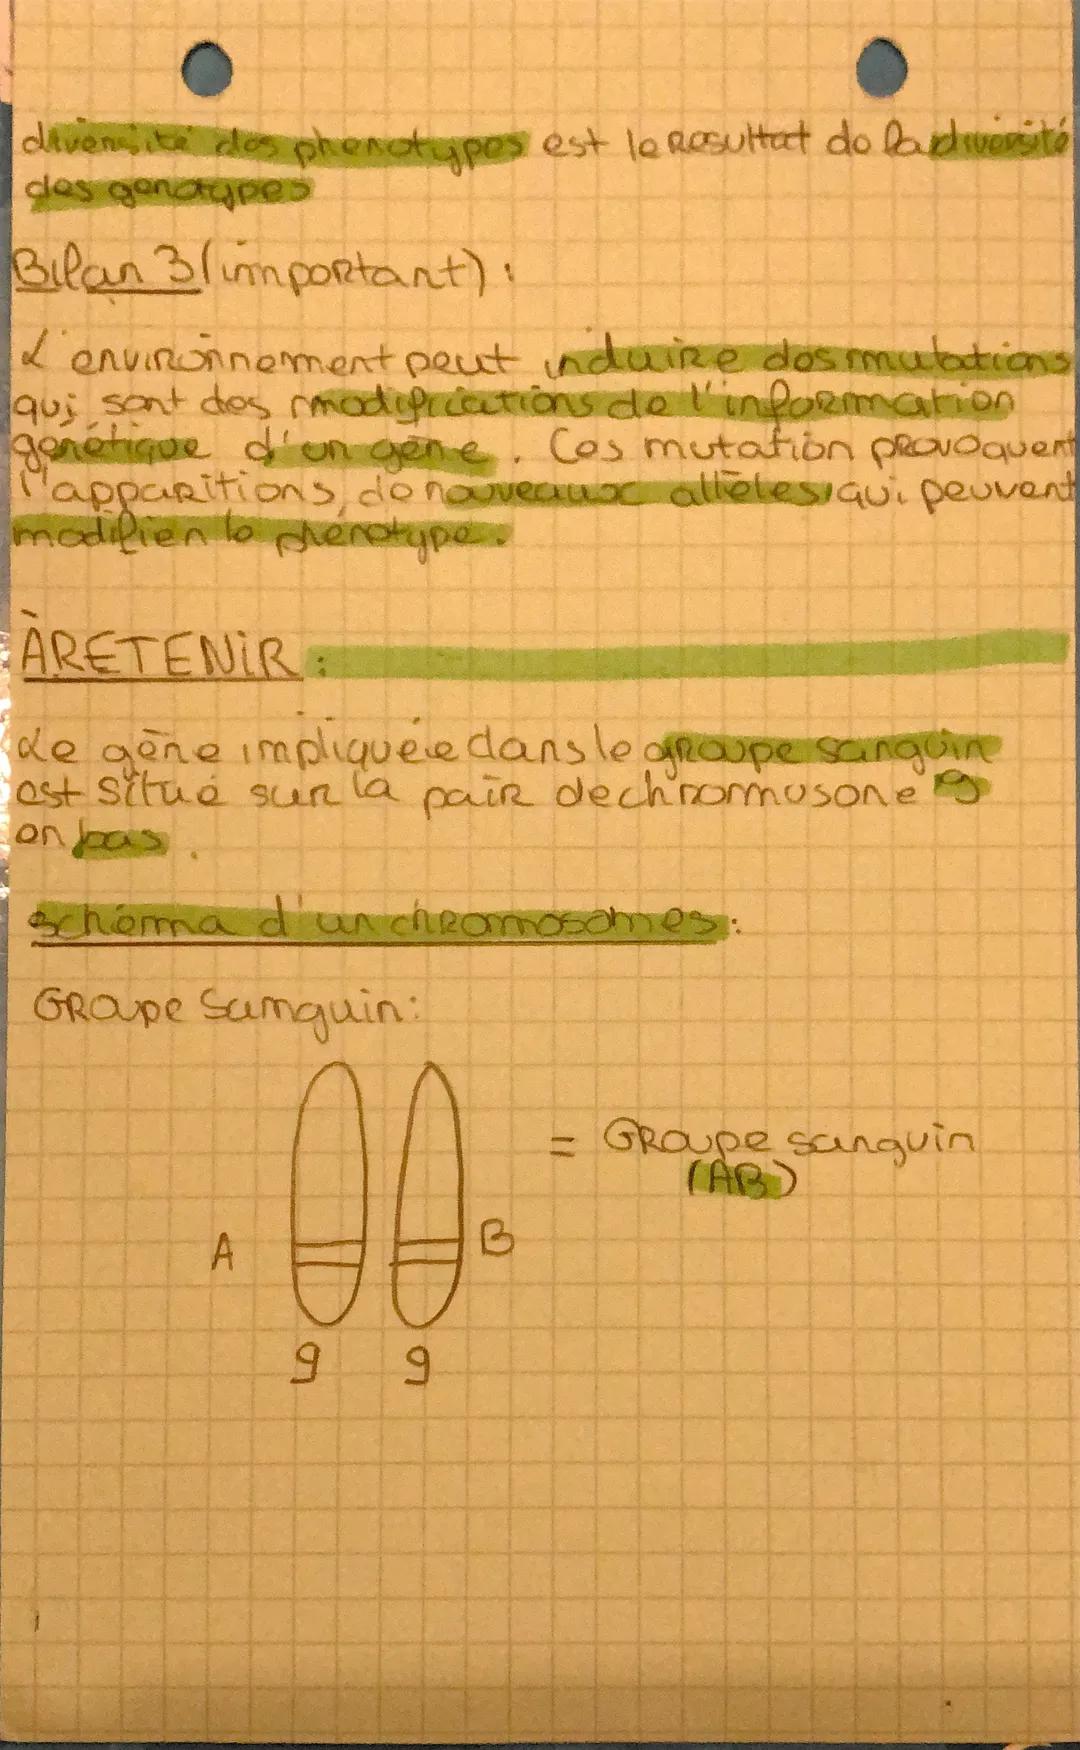 diversité des phenotypes est le Resultat de la diversité
des genotypes
Bilan 3 (important) :
L'environnement peut induire des mutations
qui sont des modifications de l'information
genétique d'un gène. Ces mutation provoquent
l'apparitions, de nouveaux allèles, qui peuvent
modifier le phénotype.
À RETENIR :
Le gène impliquée dans le groupe sanguin
est situé sur la pair de chromosone 9
en bas.
schéma d'un chromosomes :
GRoupe Sanguin :
= GRoupe sanguin
(AB)
A B
9 9